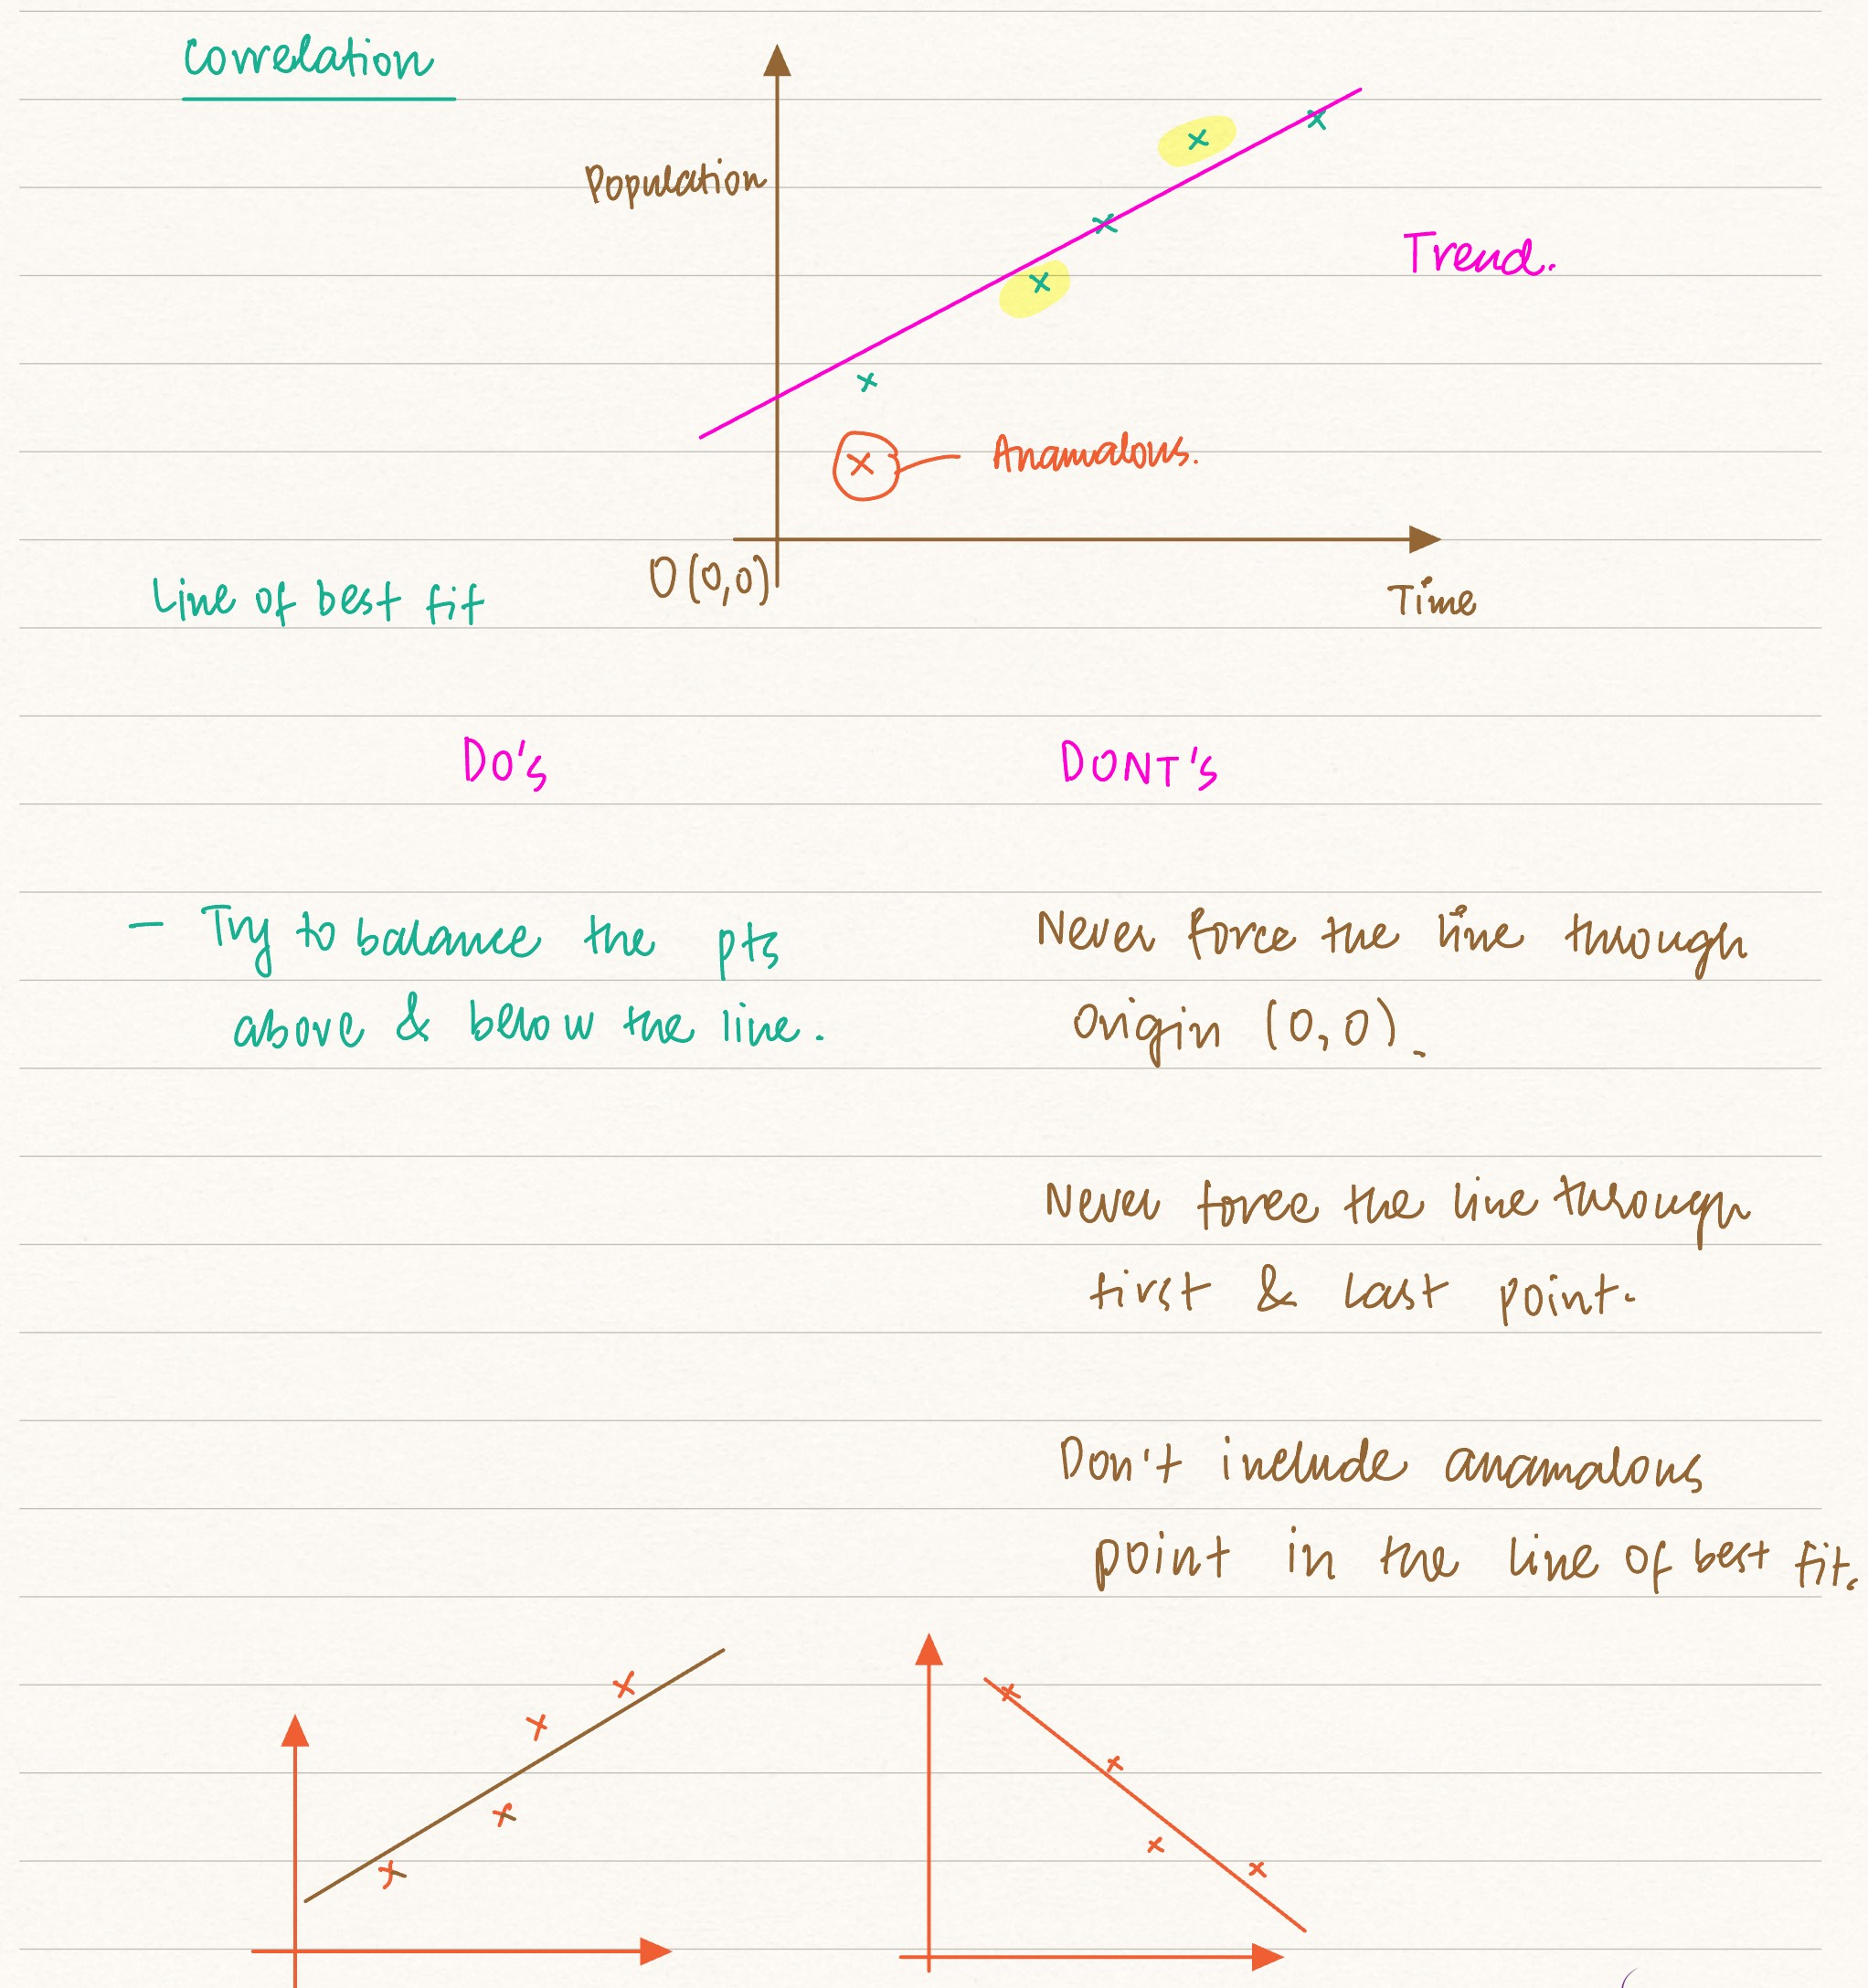 Correlation
Population
Trend.
Anamalous.
O (0,0)
Time
Line of best fit
DO's
DONT's
- Try to balance the pts
above & below the line.
Never force the line through
origin (0,0).
Never force the line through
first & last point.
Don't include anamalous
point in the line of best fit.